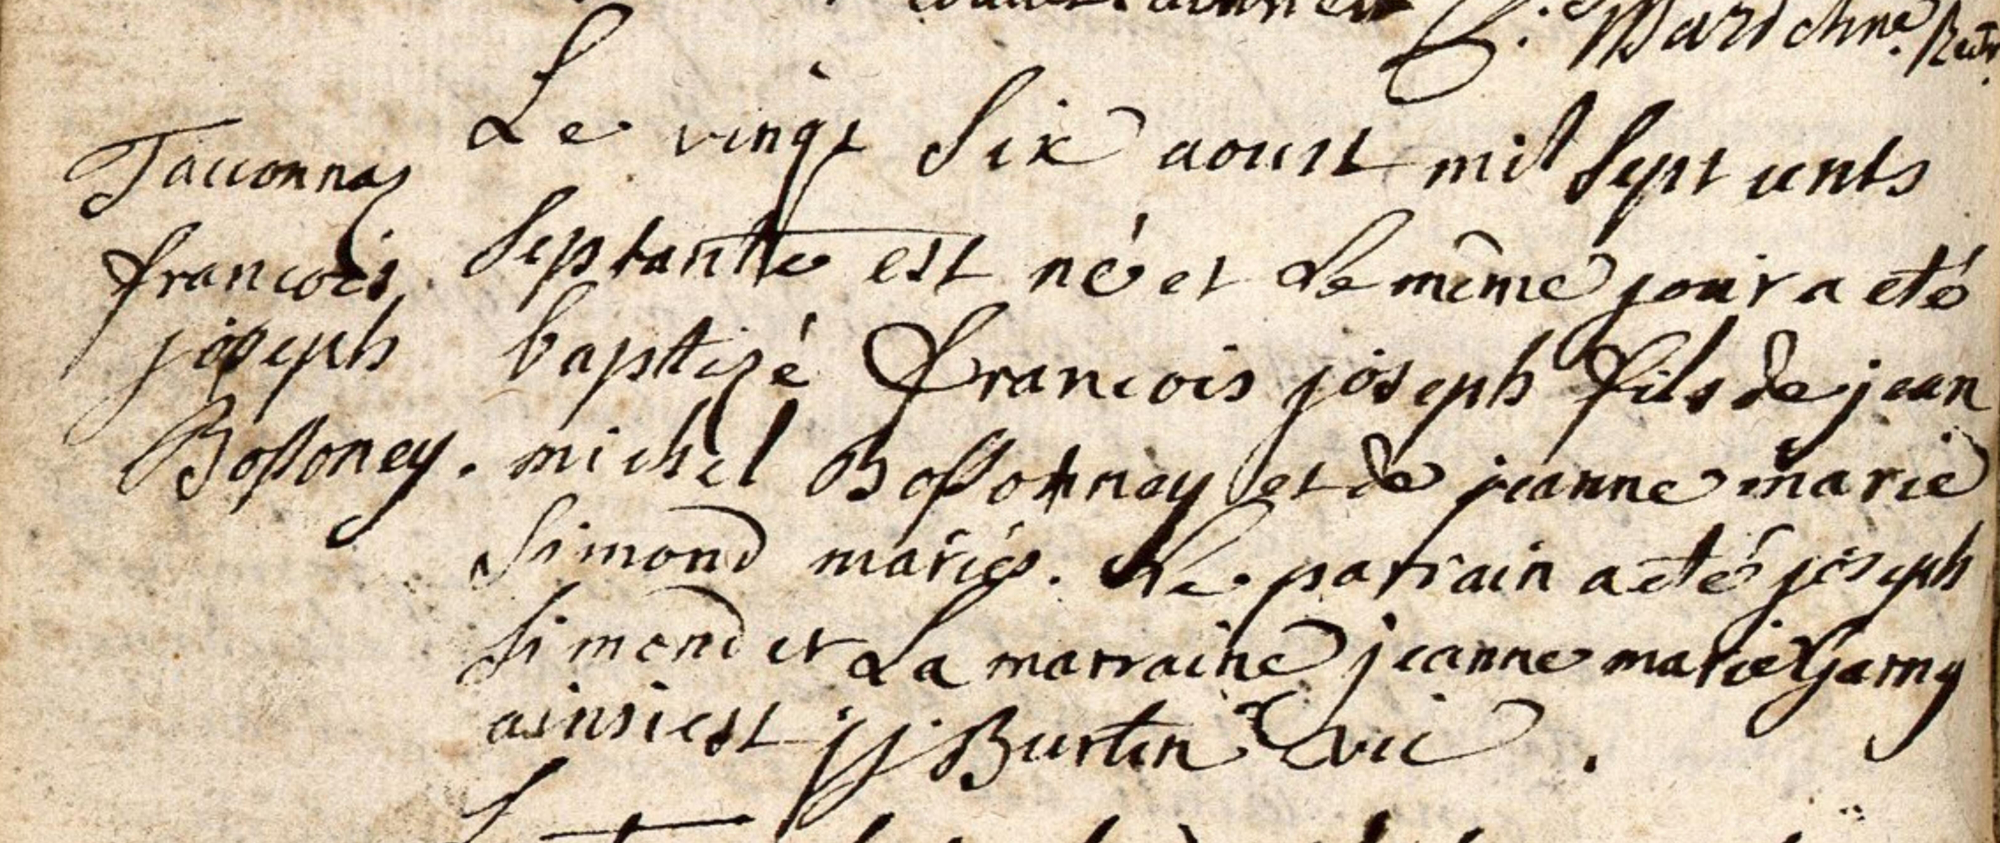 J. Marichne. Rect.
Taconnaz
francois
joseph
Bossoney.
Le vingt six aoust mil sept cents
septante est né et le même jour a eté
baptizé francois joseph fils de jean
michel Bossonney et de jeanne marie
Simond mariés. Le parrain a eté joseph
Simond et La marraine jeanne marie Garny
ainsi est jj Burtin vic.